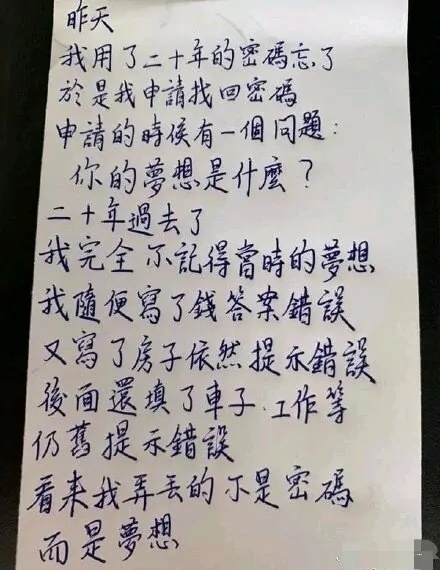 昨天
我用了二十年的密碼忘了
於是我申請找回密碼
申請的時侯有一個問題:
你的夢想是什麼?
二十年過去了
我完全不記得當時的夢想
我隨便寫了錢答案錯誤
又寫了房子依然提示錯誤
後面還填了車子.工作等
仍舊提示錯誤
看来我弄丟的不是密碼
而是夢想